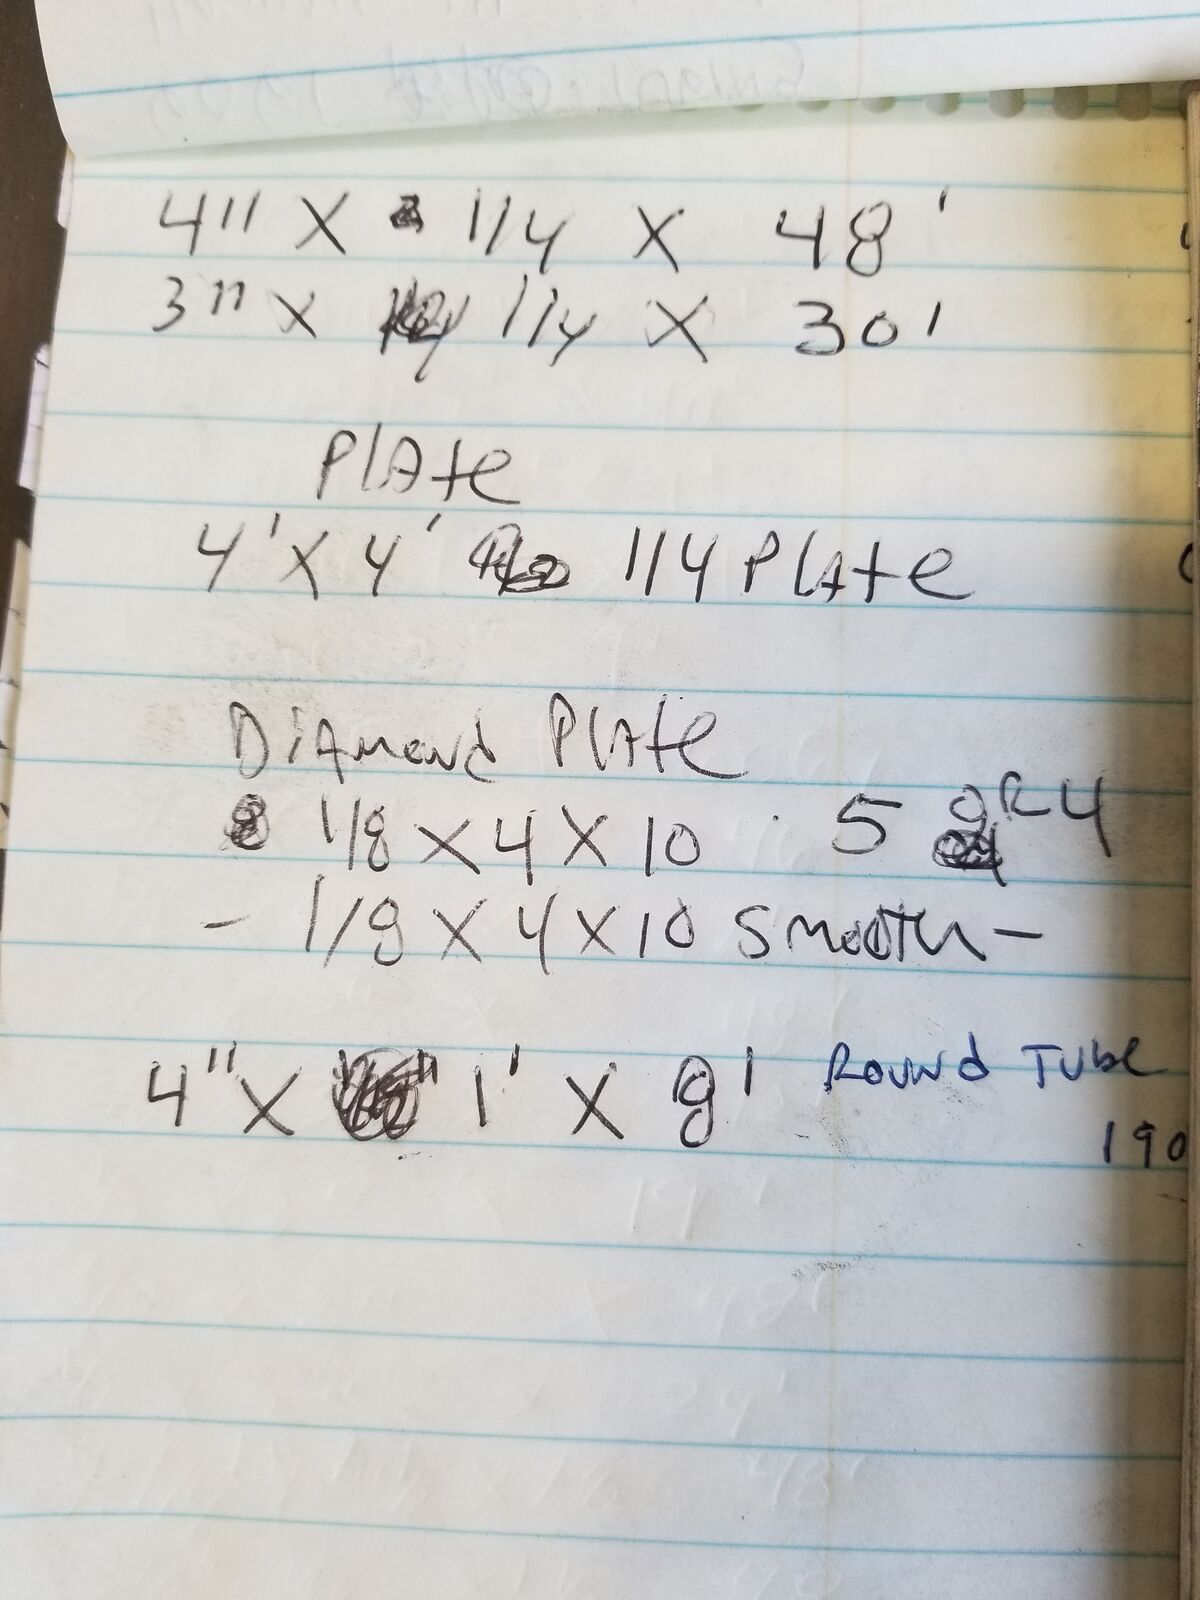 4" X 1/4 X 48'
3" X 1/4 X 30'
Plate
4' X 4' 1/4 Plate
Diamond Plate
1/8 X 4 X 10 5 gR 4
- 1/8 X 4 X 10 Smooth -
4" X 1' X 8' Round Tube
190